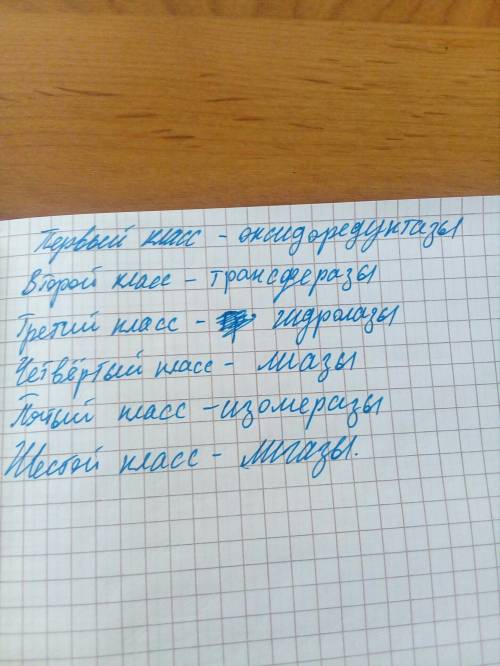 Первый класс - оксидоредуктазы
Второй класс - трансферазы
Третий класс - гидролазы
Четвёртый класс - лиазы
Пятый класс - изомеразы
Шестой класс - лигазы.